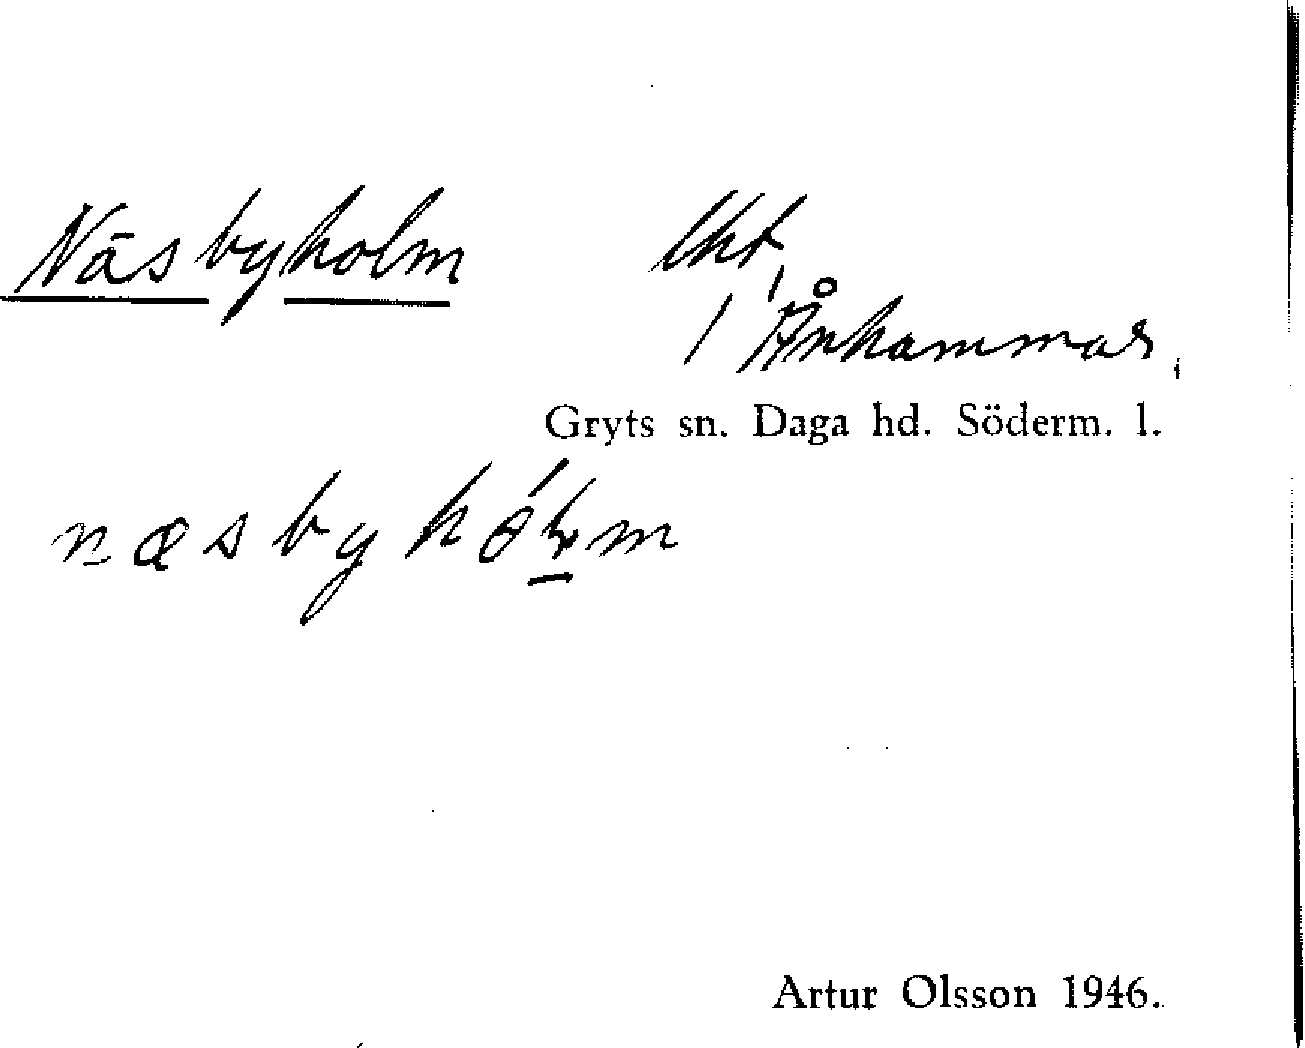 Näsbyholm
lht,
i Ånhammar,
Gryts sn. Daga hd. Söderm. l.
Artur Olsson 1946.